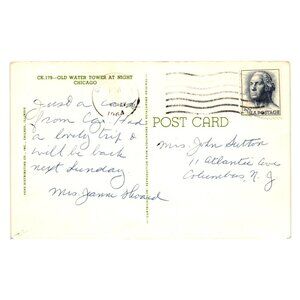 CK.175—OLD WATER TOWER AT NIGHT
CHICAGO
Just a card
From Cgo. Had
a lovely trip &
will be back
next Sunday
Mrs Jeanne
POST CARD
U.S. POSTAGE
Mrs. John Sutton
11 Atlantic Ave
Columbus, N. J